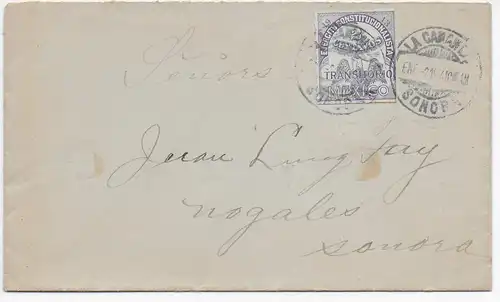 19 13
EJERCITO CONSTITUCIONALISTA
TRANSITORIO
MEXICO
LA CANANEA
ENE
SONORA
Señor
Juan Lung Tay
nogales
sonora